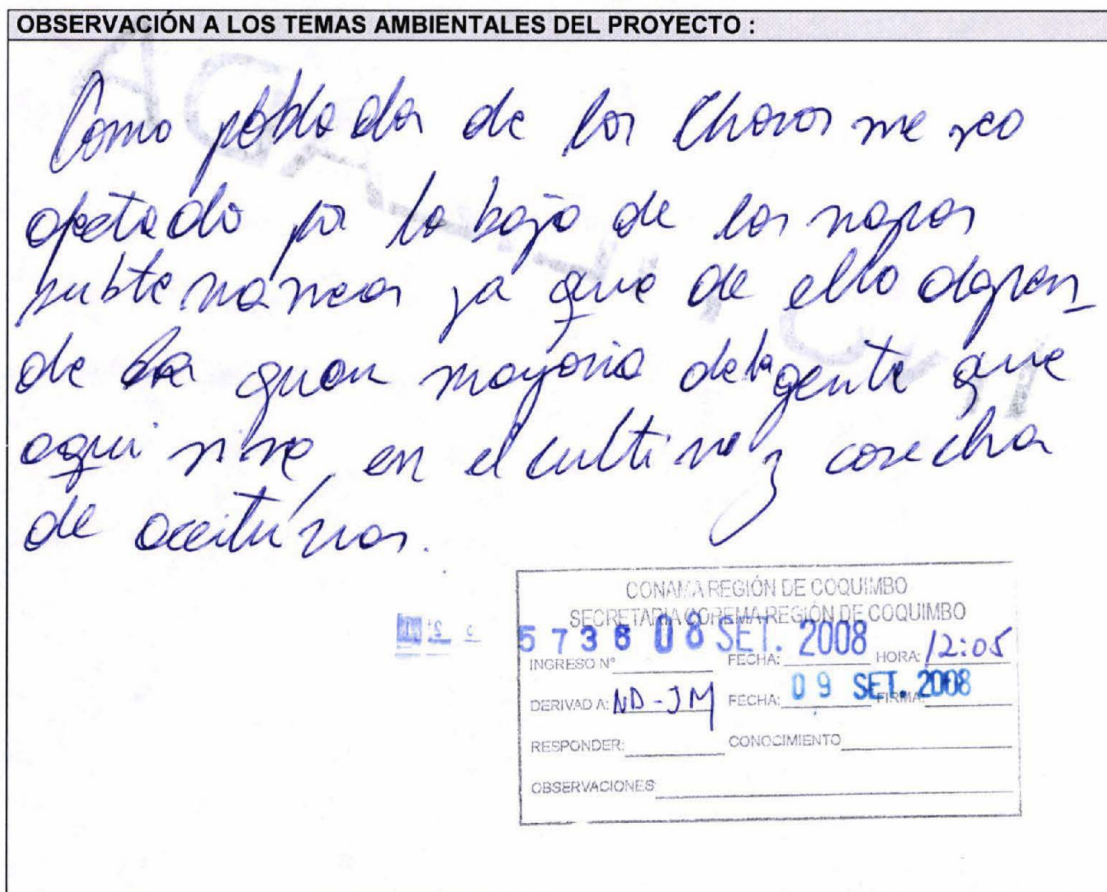 OBSERVACIÓN A LOS TEMAS AMBIENTALES DEL PROYECTO :
Como poblador de los Choros me veo
afectado por la baja de las napas
subterráneas ya que de ello depen_
de la gran mayoria de la gente que
aqui vive, en el cultivo y cosecha
de aceitunas.
CONAMA REGIÓN DE COQUIMBO
SECRETARIA COREMA REGIÓN DE COQUIMBO
INGRESO N° 5736 FECHA: 08 SET. 2008 HORA: 12:05
DERIVAD A: ND - JM FECHA: 09 SET. 2008 FIRMA:
RESPONDER: CONOCIMIENTO
OBSERVACIONES